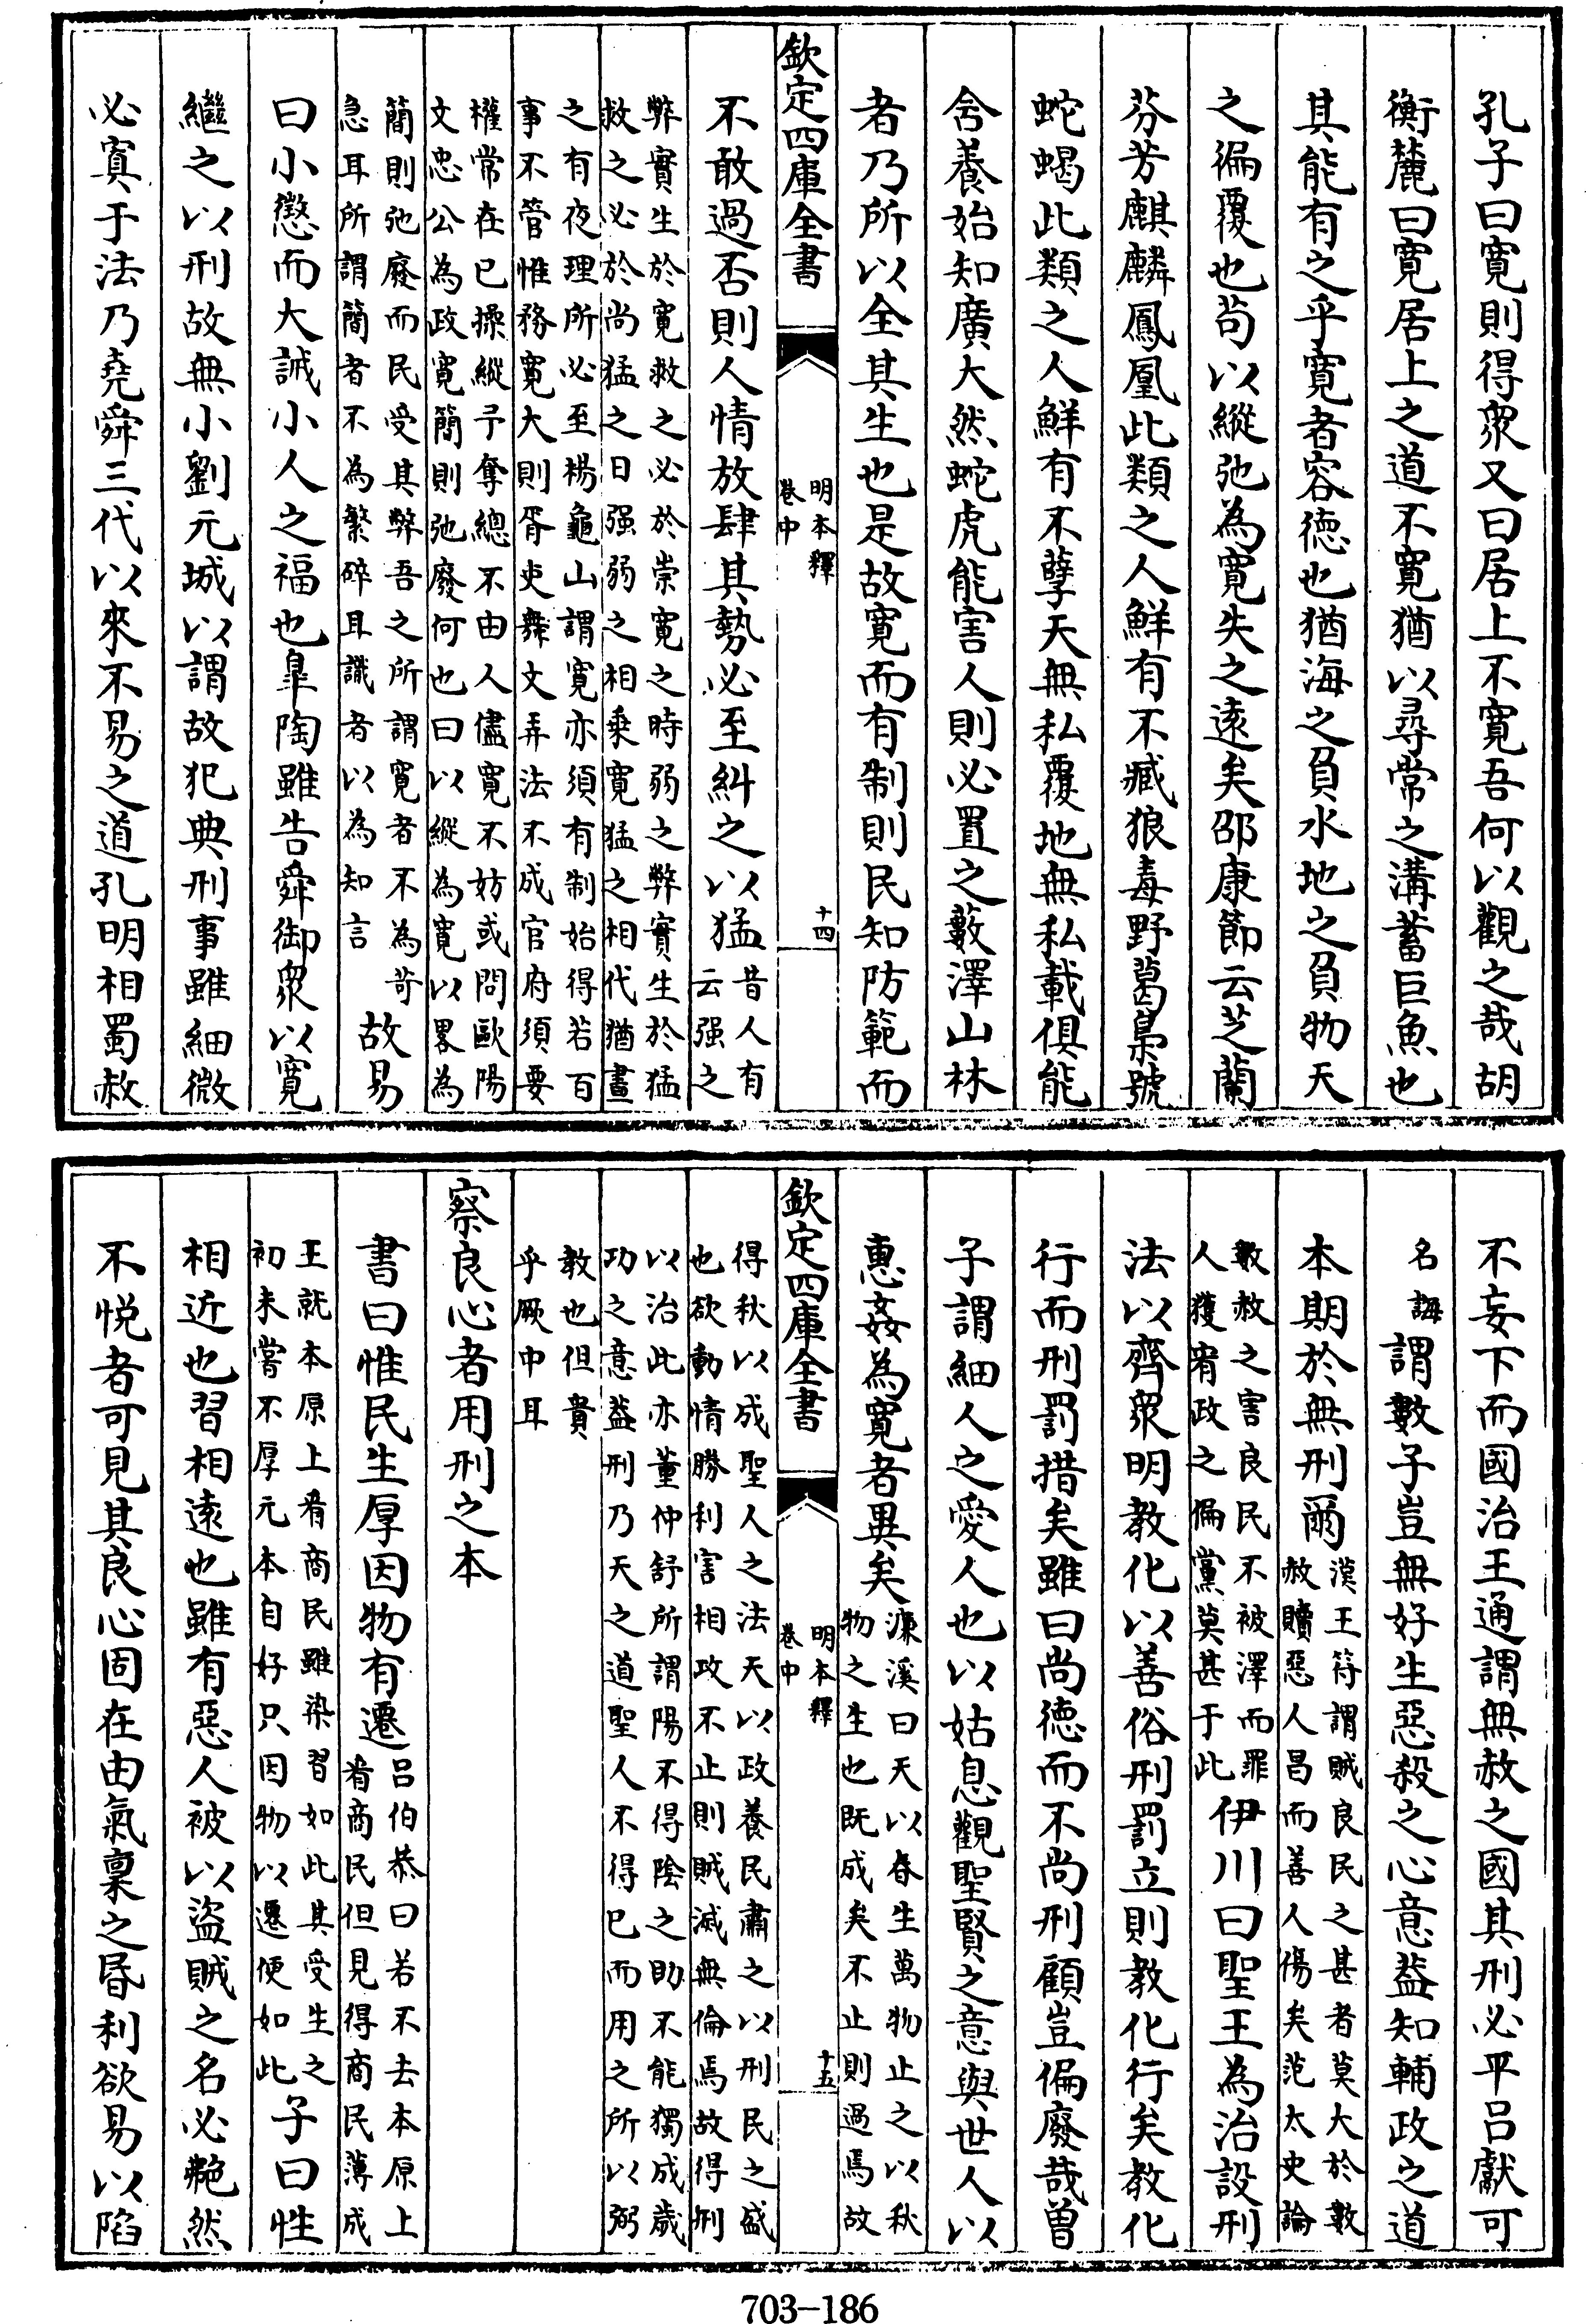 孔子曰寛則得衆又曰居上不寛吾何以觀之哉胡
衡麓曰寛居上之道不寛猶以尋常之溝蓄巨魚也
其能有之乎寛者容徳也猶海之負水地之負物天
之徧覆也茍以縱弛為寛失之逺矣邵康節云芝蘭
芬芳麒麟鳳凰此類之人鮮有不臧狼毒野葛梟號
蛇蝎此類之人鮮有不孽天無私覆地無私載俱能
含養始知廣大然蛇虎能害人則必置之藪澤山林
者乃所以全其生也是故寛而有制則民知防範而
欽定四庫全書
明本釋
卷中
十四
不敢過否則人情放肆其勢必至糾之以猛
昔人有
云强之
弊實生於寛救之必於崇寛之時弱之弊實生於猛
救之必於尚猛之日强弱之相乗寛猛之相代猶晝
之有夜理所必至楊龜山謂寛亦須有制始得若百
事不管惟務寛大則胥吏舞文弄法不成官府須要
權常在已操縱予奪總不由人儘寛不妨或問歐陽
文忠公為政寛簡則弛廢何也曰以縱為寛以畧為
簡則弛廢而民受其弊吾之所謂寛者不為苛
急耳所謂簡者不為繁碎耳識者以為知言
故易
曰小懲而大誡小人之福也臯陶雖告舜御衆以寛
繼之以刑故無小劉元城以謂故犯典刑事雖細微
必寘于法乃堯舜三代以來不易之道孔明相蜀赦
不妄下而國治王通謂無赦之國其刑必平呂獻可
名
誨
謂數子豈無好生惡殺之心意葢知輔政之道
本期於無刑爾
漢王符謂賊良民之甚者莫大於數
赦贖惡人昌而善人傷矣范太史論
數赦之害良民不被澤而罪
人獲宥政之偏黨莫甚于此
伊川曰聖王為治設刑
法以齊衆明教化以善俗刑罰立則教化行矣教化
行而刑罰措矣雖曰尚徳而不尚刑顧豈偏廢哉曽
子謂細人之愛人也以姑息觀聖賢之意與世人以
惠姦為寛者異矣
濂溪曰天以春生萬物止之以秋
物之生也既成矣不止則過焉故
欽定四庫全書
明本釋
卷中
十五
得秋以成聖人之法天以政養民肅之以刑民之盛
也欲動情勝利害相攻不止則賊滅無倫焉故得刑
以治此亦董仲舒所謂陽不得陰之助不能獨成歳
功之意葢刑乃天之道聖人不得已而用之所以弼
教也但貴
乎厥中耳
察良心者用刑之本
書曰惟民生厚因物有遷
呂伯恭曰若不去本原上
看商民但見得商民薄成
王就本原上看商民雖染習如此其受生之
初未嘗不厚元本自好只因物以遷便如此
子曰性
相近也習相逺也雖有惡人被以盜賊之名必艴然
不悦者可見其良心固在由氣稟之昏利欲易以陷
703-186